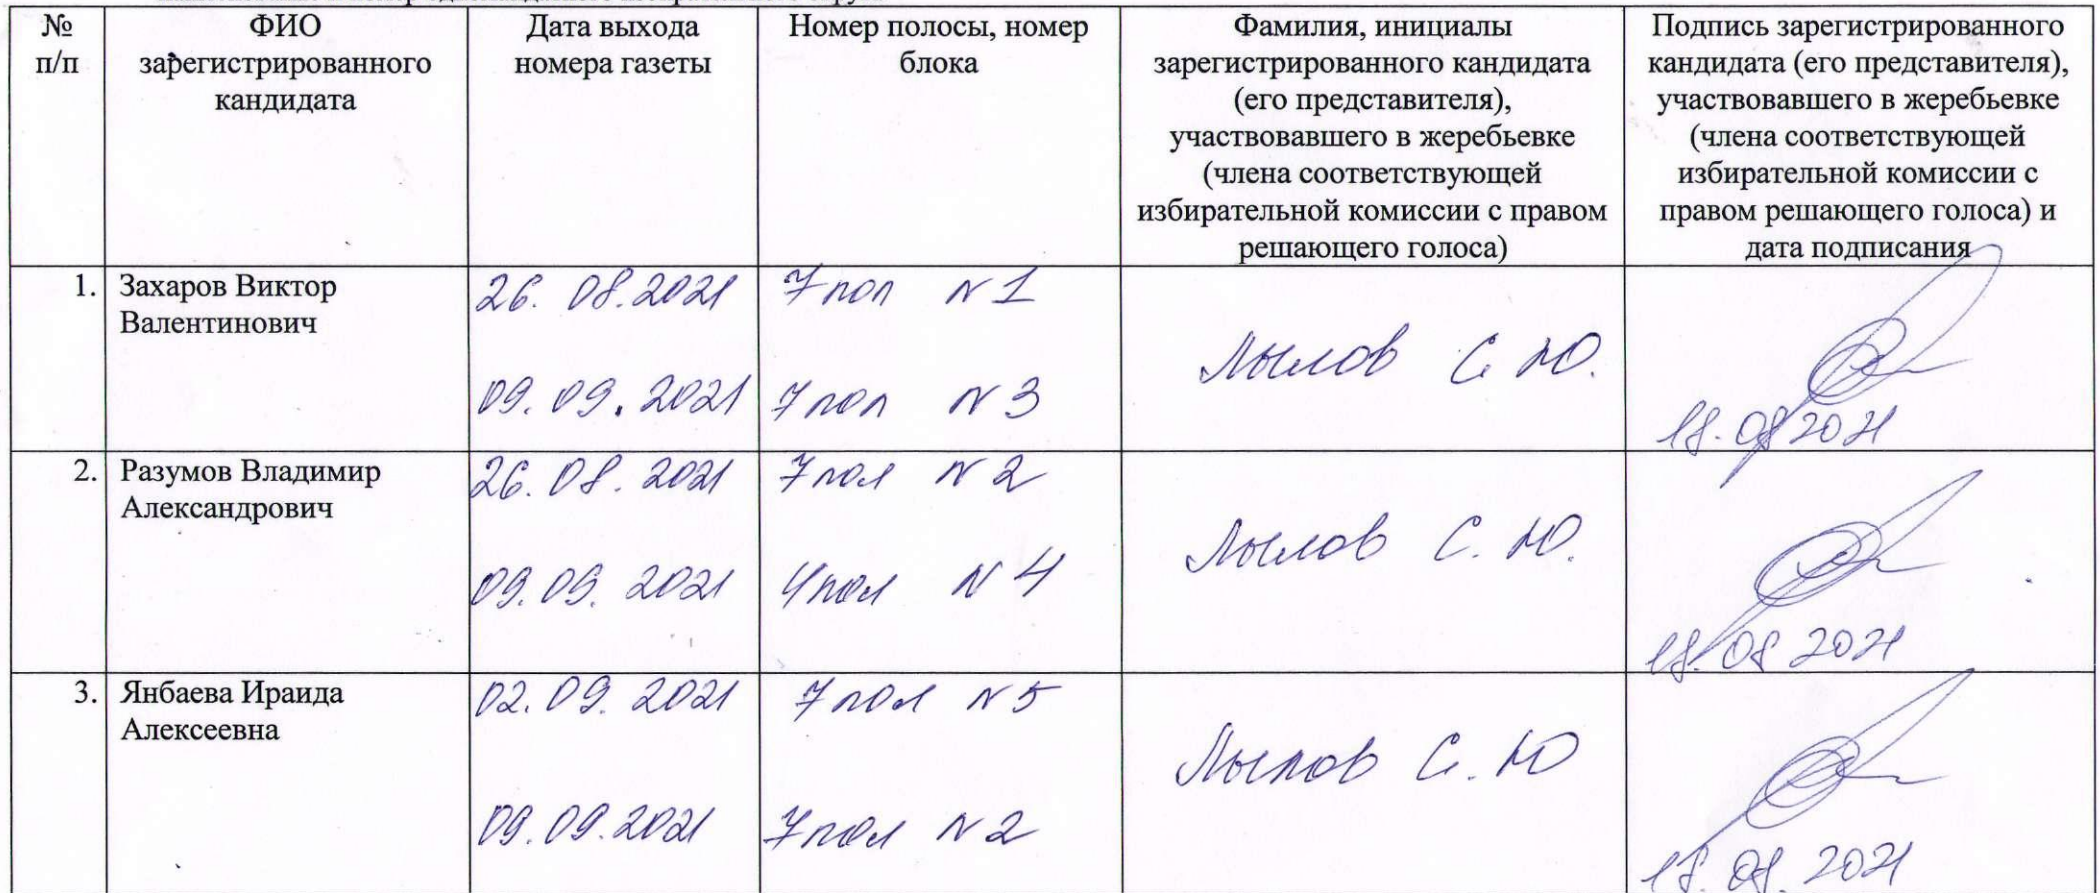 №
п/п
ФИО
зарегистрированного
кандидата
Дата выхода
номера газеты
Номер полосы, номер
блока
Фамилия, инициалы
зарегистрированного кандидата
(его представителя),
участвовавшего в жеребьевке
(члена соответствующей
избирательной комиссии с правом
решающего голоса)
Подпись зарегистрированного
кандидата (его представителя),
участвовавшего в жеребьевке
(члена соответствующей
избирательной комиссии с
правом решающего голоса) и
дата подписания
1.
Захаров Виктор
Валентинович
26. 08.2021
09.09.2021
7 пол N 1
7 пол N 3
Лылов С. Ю.
18.08 2021
2.
Разумов Владимир
Александрович
26.08.2021
09.09.2021
7 пол N 2
4 пол N 4
Лылов С. Ю.
18.08 2021
3.
Янбаева Ираида
Алексеевна
02.09.2021
09.09.2021
7 пол N 5
7 пол N 2
Лылов С. Ю
18.08.2021